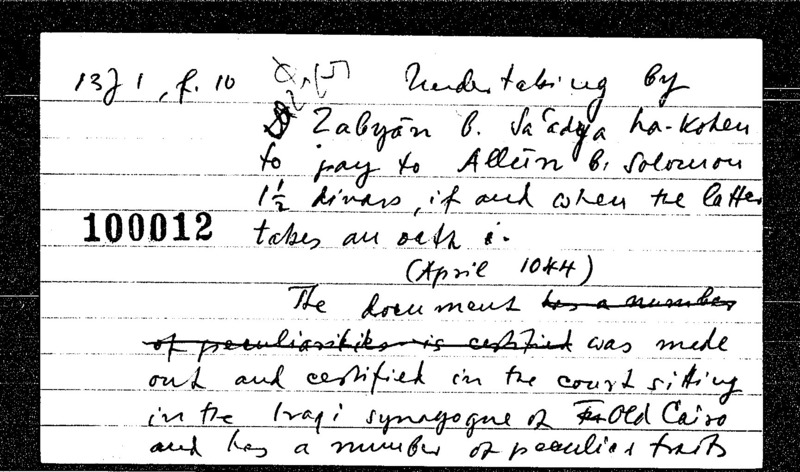 13J 1, f. 10 Undertaking by
Zabyān b. Sa'adya ha-Kohen
to pay to Allūn b. Solomon
1½ dinars, if and when the latter
100012 takes an oath
(April 1044)
The document has a number
of peculiarities is certified was made
out and certified in the court sitting
in the Iraqi synagogue of Old Cairo
and has a number of peculiar traits